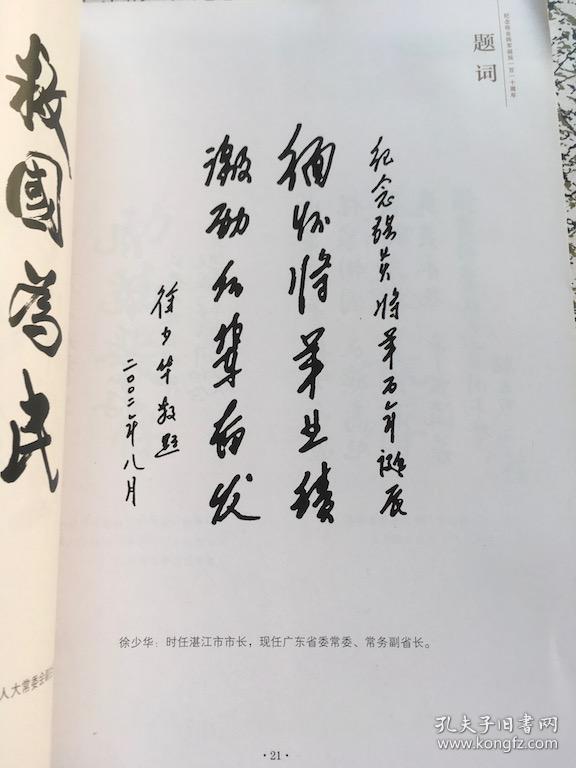 纪念张炎将军诞辰一百一十周年
题词
纪念张炎将军百年诞辰
缅怀将军业绩
激励后辈奋发
徐少华敬题
二〇〇二年八月
救國為民
徐少华：时任湛江市市长，现任广东省委常委、常务副省长。
人大常委会副
·21·
孔夫子旧书网
www.kongfz.com